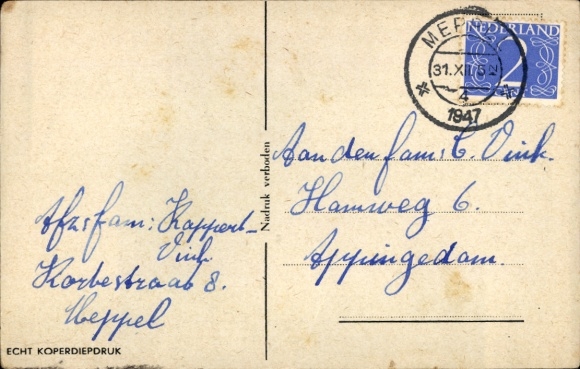 MEPPEL
31.XII.5 N
4
1947
NEDERLAND
2
Aan den fam: C. Vink.
Hamweg 6.
Appingedam.
Nadruk verboden
Afz: fam: Kappert-
Vink
Korbestraat 8.
Meppel
ECHT KOPERDIEPDRUK